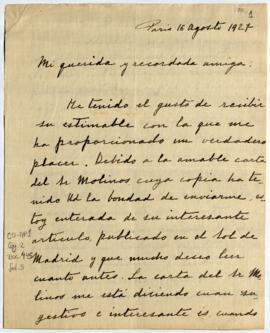 1
Paris 16 Agosto 1927
Mi querida y recordada amiga:
He tenido el gusto de recibir
su estimable con la que me
ha proporcionado un verdadero
placer. Debido a la amable carta
del Sr Molinos cuya copia ha te-
nido Ud la bondad de enviarme, es-
toy enterada de su interesante
artículo, publicado en el Sol de
Madrid y que mucho deseo leer
cuanto antes. La carta del Sr Mo-
linos me está diciendo cuan su-
gestivo e interesante es, cuando